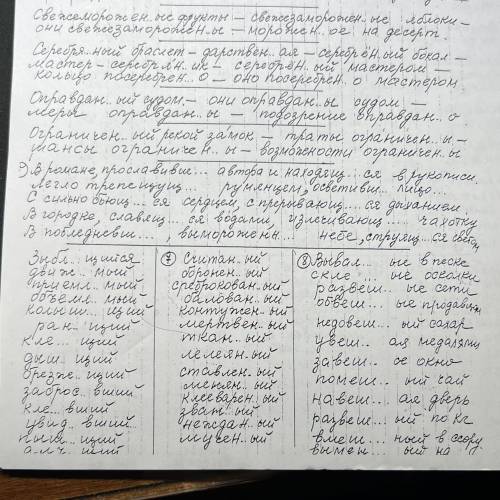 Свежеморожен..ые фрукты – свежезаморожен..ые яблоки –
они свежезаморожен..ы – морожен..ое на десерт.
Серебря..ный браслет – дарствен..ая – серебрён..ый бокал –
мастер – серебрян..ик – серебрён..ый мастером –
кольцо посеребрен..о – оно посеребрен..о мастером
Оправдан..ый судом – они оправдан..ы судом –
меры оправдан..ы – подозрение оправдан..о
Ограничен..ый рекой замок – траты ограничен..ы –
шансы ограничен..ы – возможности ограничен..ы
В романе, прославивше... автора и находящ... ся в рукописи.
Легло трепещущ... румянцем, осветивш... лицо...
С сильно бьющ... ся сердцем, с прерывающ... ся дыханием.
В городке, славящ... ся водами, излечивающ... чахотку
В побледневш..., вымороженн... небе, струящ... ся светом
Зыбл..щийся
движ..мый
приемл..мый
объемл..мый
колыш..щий
ран..щий
кле...щий
дыш..щий
брезж..щий
заброс..вший
кле..вший
увид..вший
пыш..щий
алч..щий
7 Считан..ый
обронен..ый
среброкован..ый
балован..ый
контужен..ый
мертвен..ый
ткан..ый
лелеян..ый
ставлен..ый
менян..ый
клееварен..ый
зван..ый
неждан..ый
мучен..ый
8 Вывал... ые в песке
скле... ые осколки
развеш... ые сети
обвеш... ые продавцом
недовеш... ый сахар
увеш... ая медалями
завеш... ое окно
помеш... ый чай
навеш... ая дверь
развеш... ый по кг
вмеш... ный в ссору
вымен... ый на